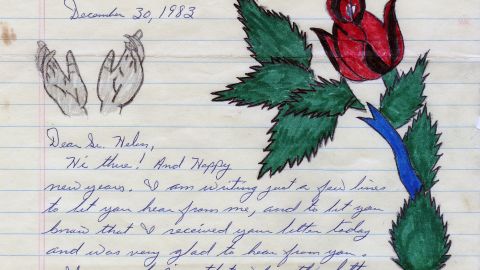 December 30, 1983
Dear Sr. Helen,
Hi there! And Happy
new years. I am writing just a few lines
to let you hear from me, and to let you
know that I received your letter today
and was very glad to hear from you.